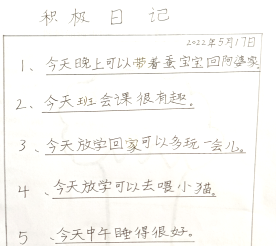 积极日记
2022年5月17日
1、今天晚上可以带着蚕宝宝回阿婆家
2、今天班会课很有趣。
3、今天放学回家可以多玩一会儿。
4、今天放学可以去喂小猫。
5、今天中午睡得很好。